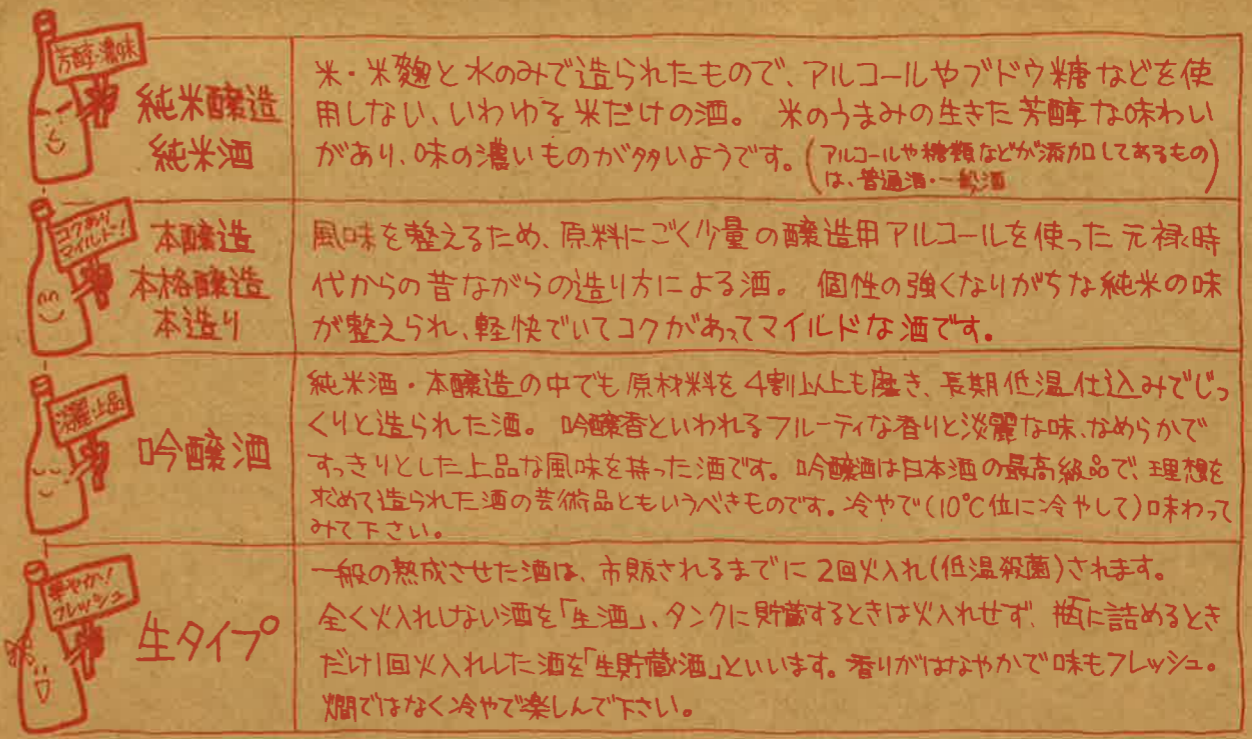 芳醇・濃味
純米醸造
純米酒
米・米麹と水のみで造られたもので、アルコールやブドウ糖などを使
用しない、いわゆる米だけの酒。 米のうまみの生きた芳醇な味わい
があり、味の濃いものが多いようです。(アルコールや糖類などが添加してあるもの
は、普通酒・一般酒)
コクあり
マイルド!
本醸造
本格醸造
本造り
風味を整えるため、原料にごく少量の醸造用アルコールを使った元禄時
代からの昔ながらの造り方による酒。 個性の強くなりがちな純米の味
が整えられ、軽快でいてコクがあってマイルドな酒です。
淡麗上品
吟醸酒
純米酒・本醸造の中でも原材料を4割以上も磨き、長期低温仕込みでじっ
くりと造られた酒。 吟醸香といわれるフルーティな香りと淡麗な味、なめらかで
すっきりとした上品な風味を持った酒です。吟醸酒は日本酒の最高級品で、理想を
求めて造られた酒の芸術品ともいうべきものです。冷やで(10℃位に冷やして)味わって
みて下さい。
華やか!
フレッシュ
生タイプ
一般の熟成させた酒は、市販されるまでに2回火入れ(低温殺菌)されます。
全く火入れしない酒を「生酒」、タンクに貯蔵するときは火入れせず、瓶に詰めるとき
だけ1回火入れした酒を「生貯蔵酒」といいます。香りがはなやかで味もフレッシュ。
燗ではなく冷やで楽しんで下さい。